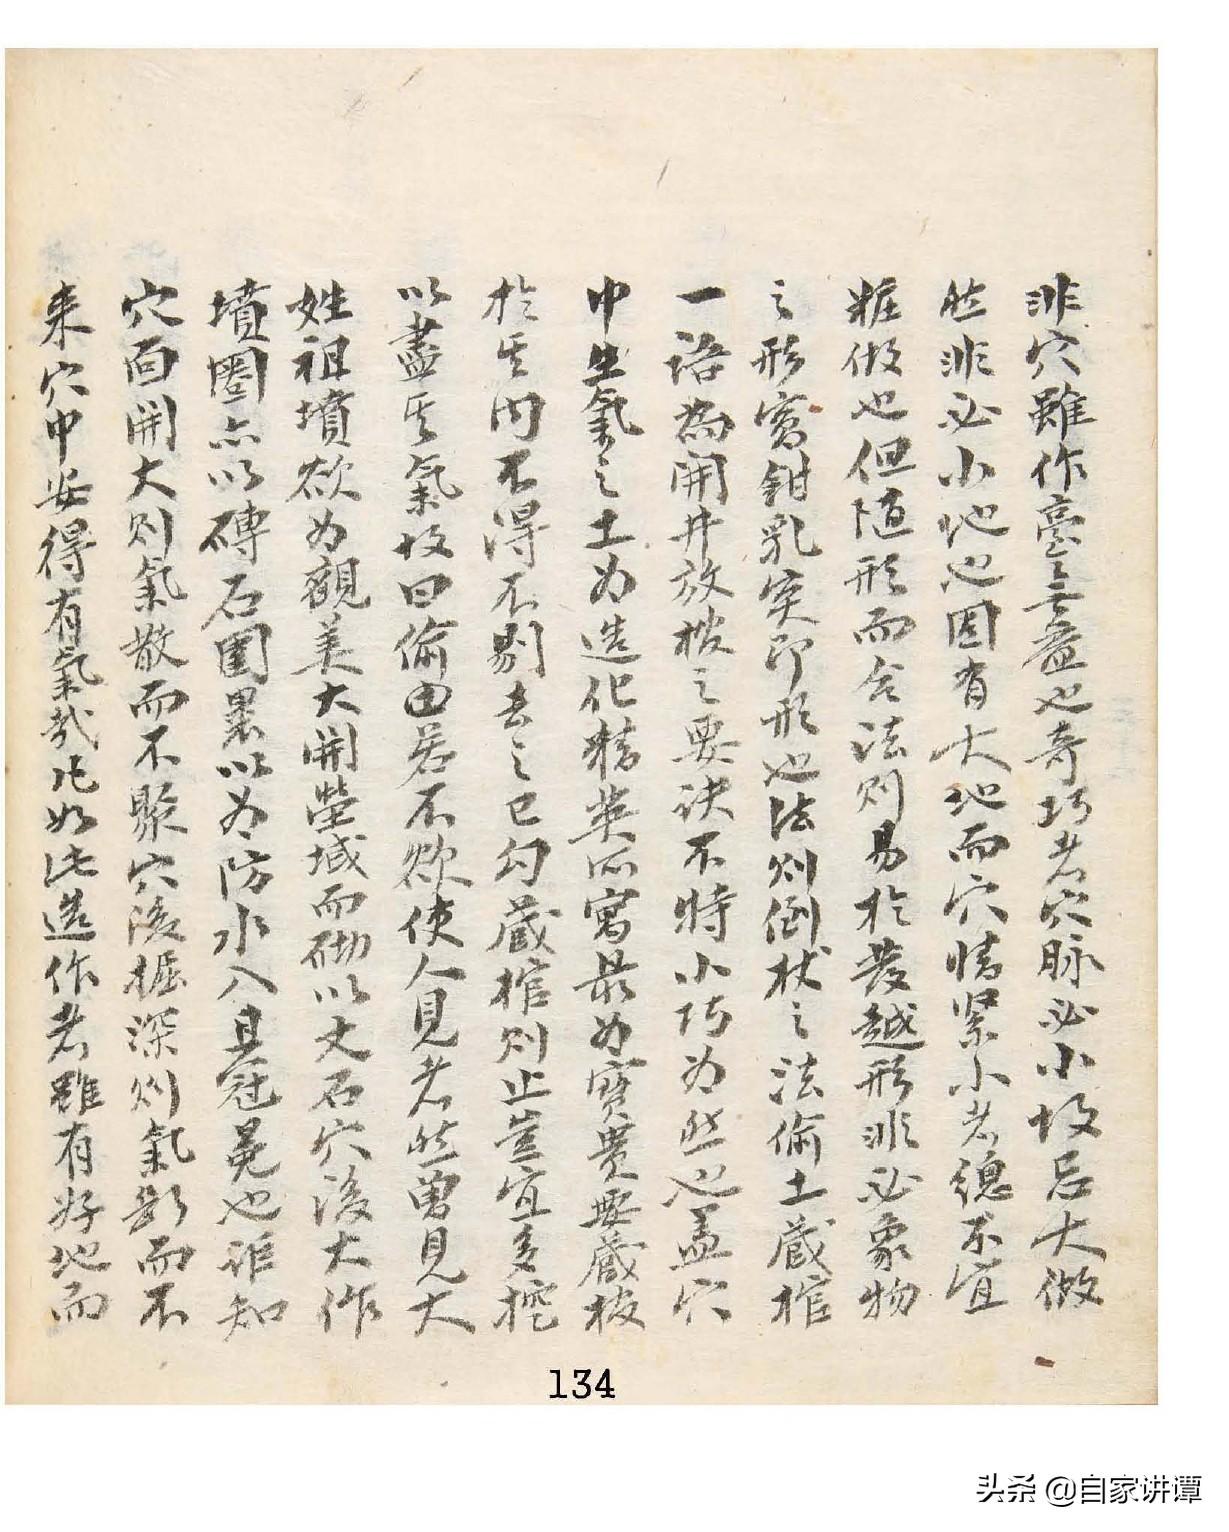 非穴雖作臺之無益也奇巧者穴脉必小故忌大做
然非必小地也固有大地而穴情緊小者總不宜
粧做也但随形而合法則易於發越形非必象物
之形窩鉗乳突即形也法則倒杖之法偷土蔵棺
一語為開井放棺之要訣不特小巧為然也盖穴
中生氣之土为造化精英所寓最为寶貴要蔵棺
於其内不得不剔去之已勾蔵棺則止豈宜多挖
以盡其氣故曰偷由若不欲使人見者然曾見大
姓祖墳欲为觀美大開塋域而砌以文石穴後大作
墳圈亦以磚石圍裹以为防水入且冠冕也詎知
穴面開大則氣散而不聚穴後掘深則氣斷而不
来穴中安得有氣哉凡如此造作者雖有好地而
134
头条 @自家讲谭